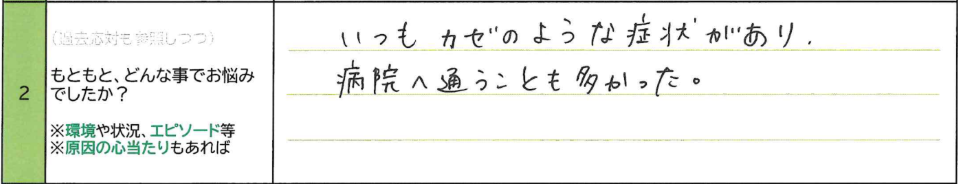 (過去応対も参照しつつ)
2
もともと、どんな事でお悩み
でしたか？
※環境や状況、エピソード等
※原因の心当たりもあれば
いつも カゼのような症状があり、
病院へ通うことも多かった。